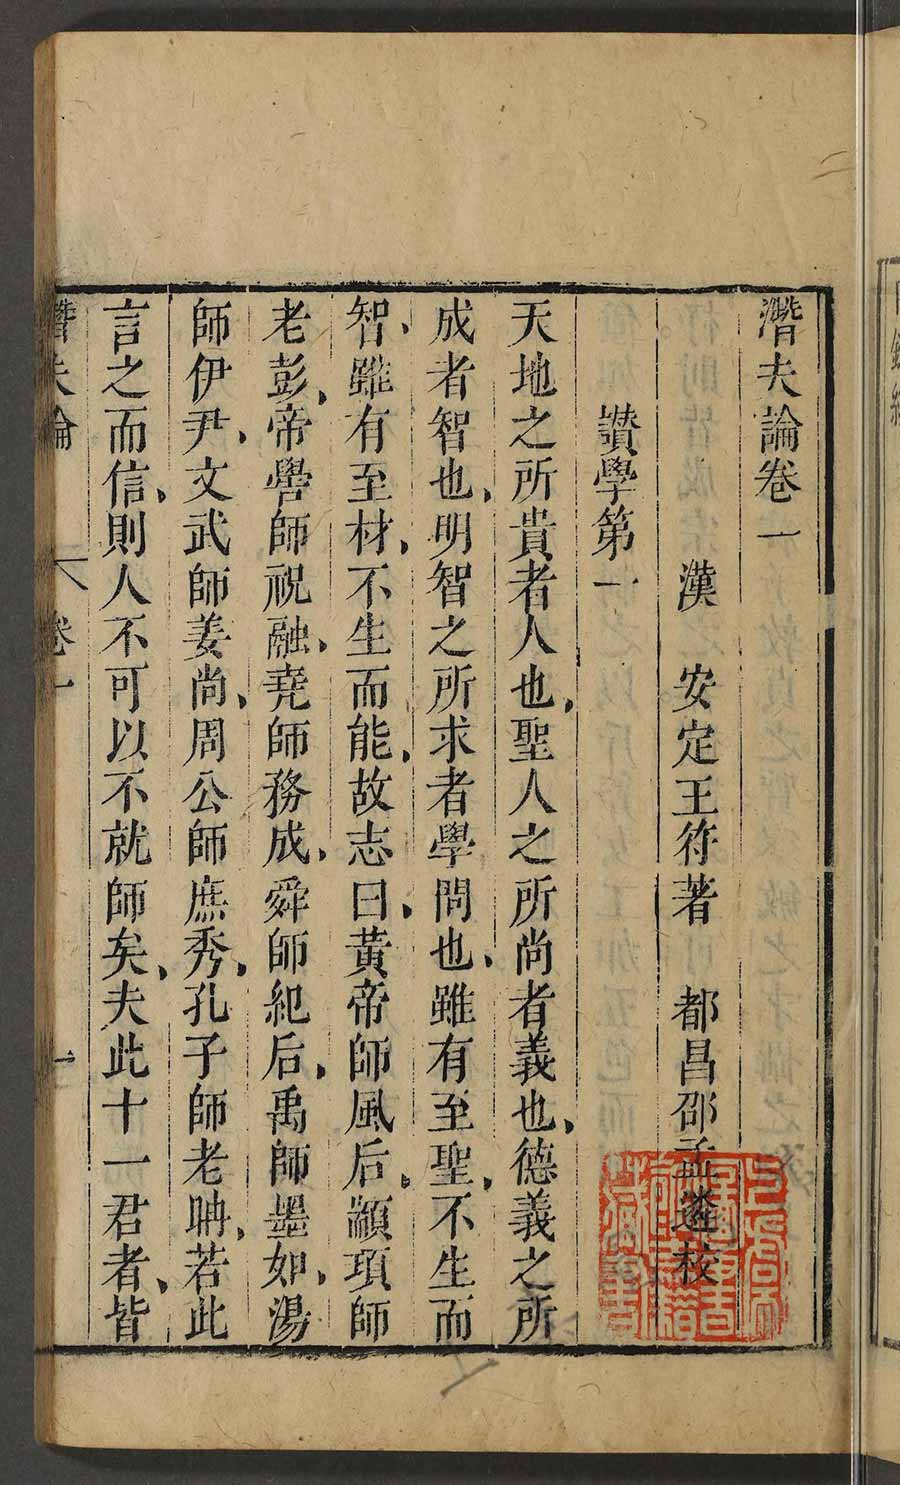 潛夫論卷一
漢 安定王符著 都昌邵孟遴校
讚學第一
天地之所貴者人也、聖人之所尚者義也、德義之所
成者智也、明智之所求者學問也、雖有至聖、不生而
智、雖有至材、不生而能、故志曰、黃帝師風后、顓頊師
老彭、帝嚳師祝融、堯師務成、舜師紀后、禹師墨如、湯
師伊尹、文武師姜尚、周公師庶秀、孔子師老聃、若此
言之而信、則人不可以不就師矣、夫此十一君者、皆
潛夫論 卷一 一